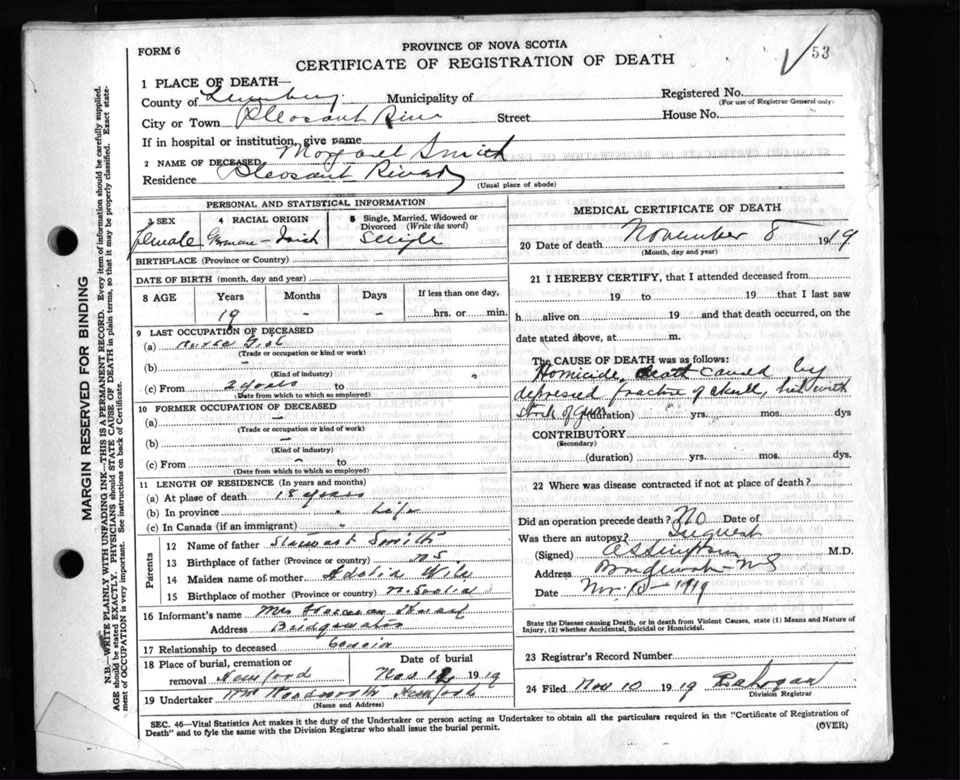 53
FORM 6
PROVINCE OF NOVA SCOTIA
CERTIFICATE OF REGISTRATION OF DEATH
MARGIN RESERVED FOR BINDING
N.B.—WRITE PLAINLY WITH UNFADING INK—THIS IS A PERMANENT RECORD. Every item of information should be carefully supplied. AGE should be stated EXACTLY. PHYSICIANS should STATE CAUSE OF DEATH in plain terms, so that it may be properly classified. Exact statement of OCCUPATION is very important. See instructions on back of Certificate.
1 PLACE OF DEATH—
County of Lunenburg Municipality of Registered No.
(For use of Registrar General only)
City or Town Pleasant River Street House No.
If in hospital or institution, give name
2 NAME OF DECEASED Margaret Smith
Residence Pleasant River
(Usual place of abode)
PERSONAL AND STATISTICAL INFORMATION
3 SEX 4 RACIAL ORIGIN 5 Single, Married, Widowed or Divorced (Write the word)
female German - Irish Single
BIRTHPLACE (Province or Country)
DATE OF BIRTH (month, day and year)
8 AGE Years Months Days If less than one day,
19 - - hrs. or min.
9 LAST OCCUPATION OF DECEASED
(a) Nurse Girl
(Trade or occupation or kind or work)
(b)
(Kind of industry)
(c) From 2 years to
(Date from which to which so employed)
10 FORMER OCCUPATION OF DECEASED
(a) -
(Trade or occupation or kind of work)
(b) -
(Kind of industry)
(c) From - to
(Date from which to which so employed)
11 LENGTH OF RESIDENCE (In years and months)
(a) At place of death 18 years
(b) In province " Life
(c) In Canada (if an immigrant) "
Parents
12 Name of father Stewart Smith
13 Birthplace of father (Province or country) NS
14 Maiden name of mother Wile
15 Birthplace of mother (Province or country) N Scotia
16 Informant's name Mrs
Address Bridgewater
17 Relationship to deceased Cousin
18 Place of burial, cremation or removal Date of burial
Newford Nov. 12 1919
19 Undertaker Wm
(Name and Address)
MEDICAL CERTIFICATE OF DEATH
20 Date of death November 8 1919
(Month, day and year)
21 I HEREBY CERTIFY, that I attended deceased from
19 to 19 that I last saw
h alive on 19 and that death occurred, on
date stated above, at m.
The CAUSE OF DEATH was as follows:
Homicide, death caused by
depressed fracture of skull, hit with
stock of gun (duration) yrs. mos. dys
CONTRIBUTORY
(Secondary)
(duration) yrs. mos. dys.
22 Where was disease contracted if not at place of death?
Did an operation precede death? No Date of
Was there an autopsy? Inquest
(Signed) M.D.
Address Bridgewater NS
Date Nov. 10 - 1919
State the Disease causing Death, or in death from Violent Causes, state (1) Means and Nature of Injury, (2) whether Accidental, Suicidal or Homicidal.
23 Registrar's Record Number
24 Filed Nov 10 1919 Hogan
Division Registrar
SEC. 46—Vital Statistics Act makes it the duty of the Undertaker or person acting as Undertaker to obtain all the particulars required in the "Certificate of Registration of
Death" and to fyle the same with the Division Registrar who shall issue the burial permit. (OVER)